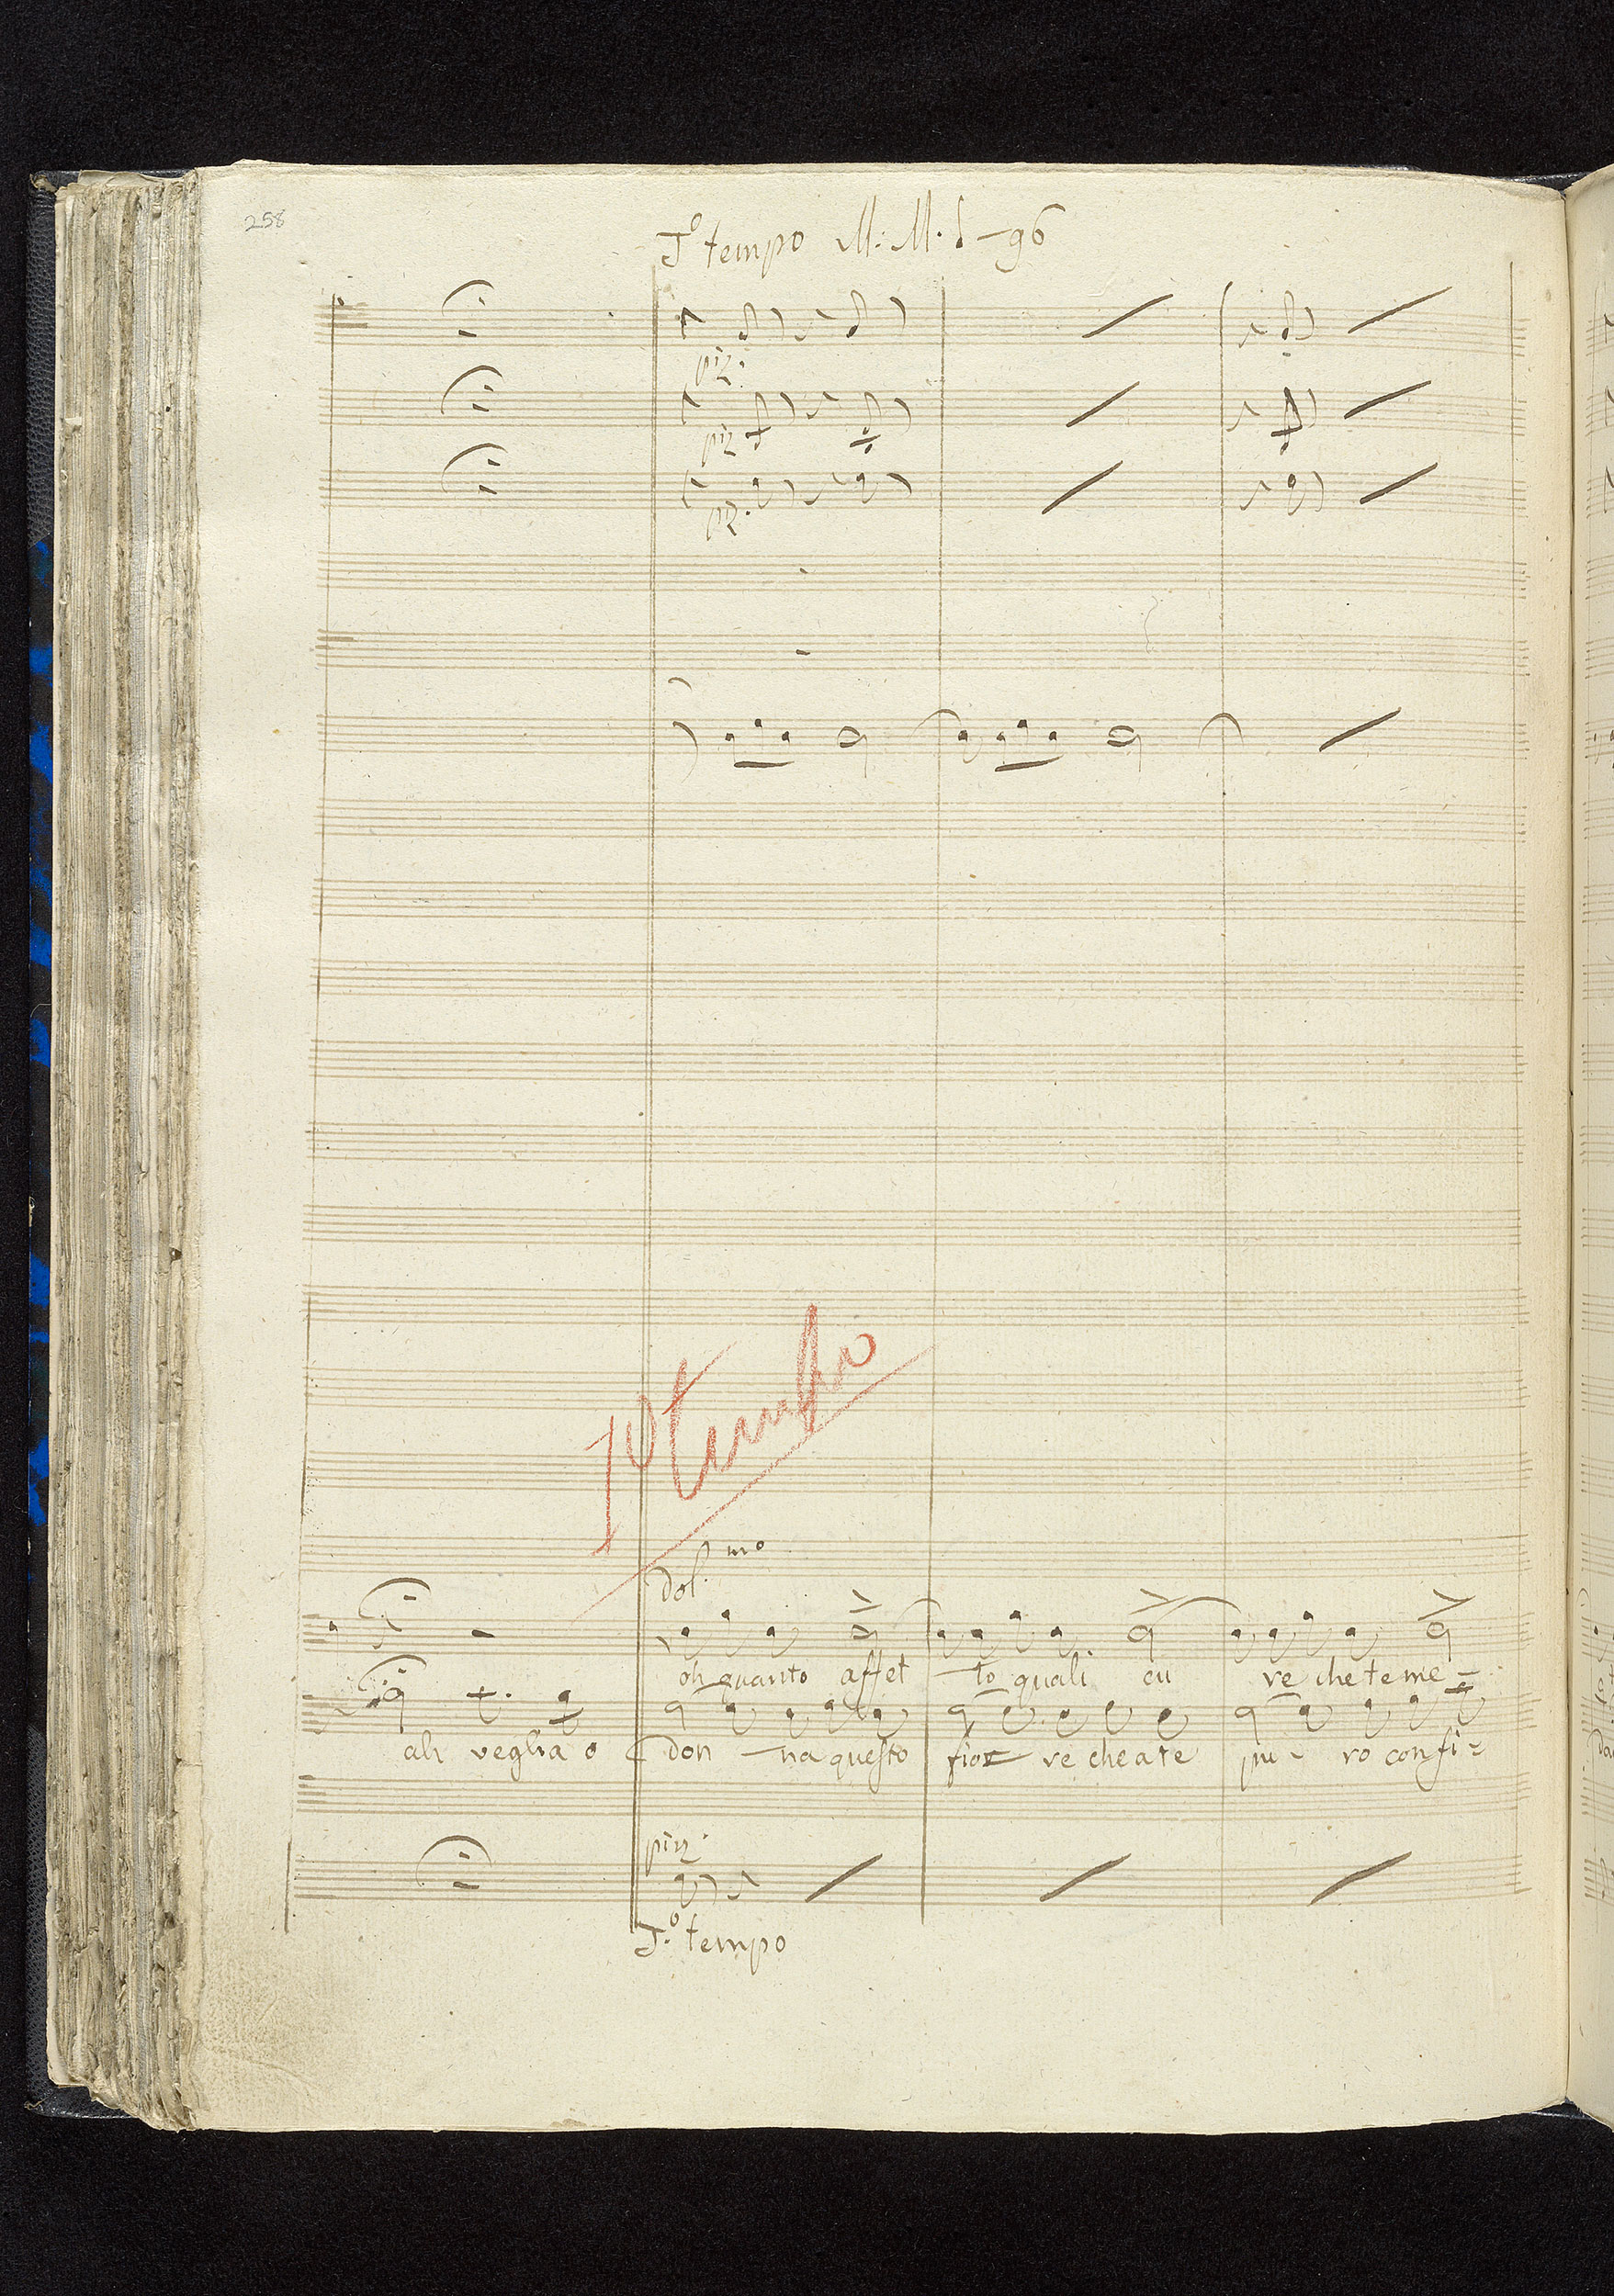 258
Iº tempo M. M. 𝅘𝅥 – 96
piz.
piz
piz.
Iº tempo
dol.mo
oh quanto affet - to quali cu re che teme =
ah veglia o don - na questo fior - re che a te pu - ro confi =
piz.
I.º tempo